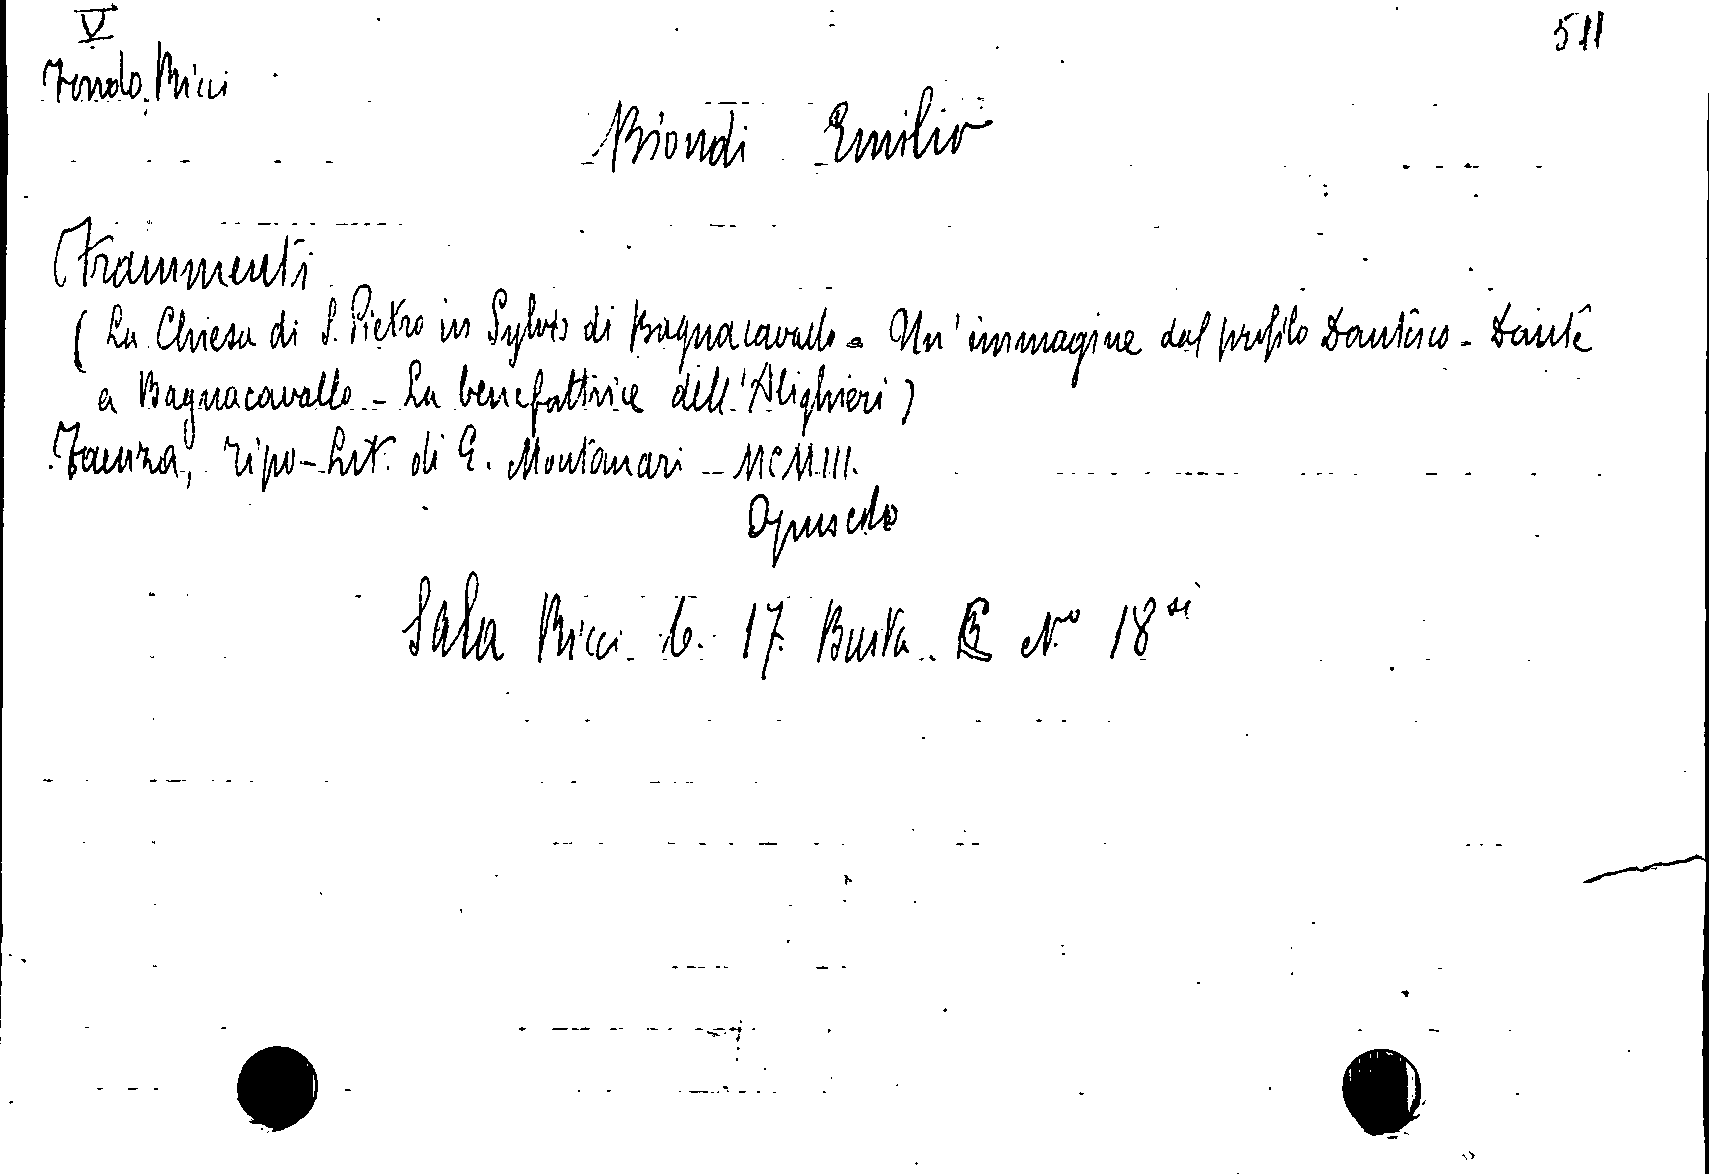 V
511
Fondo Ricci
Biondi Emilio
Frammenti
(La Chiesa di S. Pietro in Sylvis di Bagnacavallo - Un'immagine dal profilo Dantesco - Dante
a Bagnacavallo - La benefattrice dell'Alighieri)
Faenza, Tipo-Lit. di G. Montanari - MCMIII.
Opuscolo
Sala Ricci b. 17. Busta B N° 18